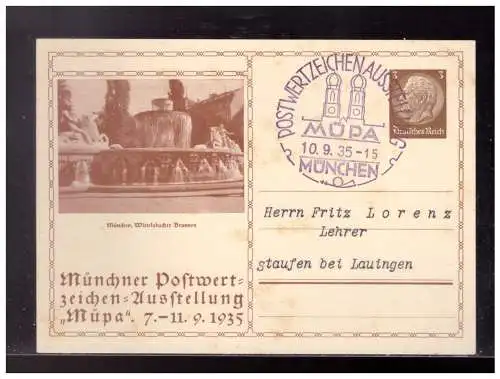 POSTWERTZEICHENAUSSTELLUNG
MÜPA
10.9.35-15
MÜNCHEN
3 3
Deutsches Reich
München, Wittelsbacher Brunnen
Herrn Fritz Lorenz
Lehrer
staufen bei Lauingen
Münchner Postwert-
zeichen-Ausstellung
„Müpa“. 7.-11.9.1935